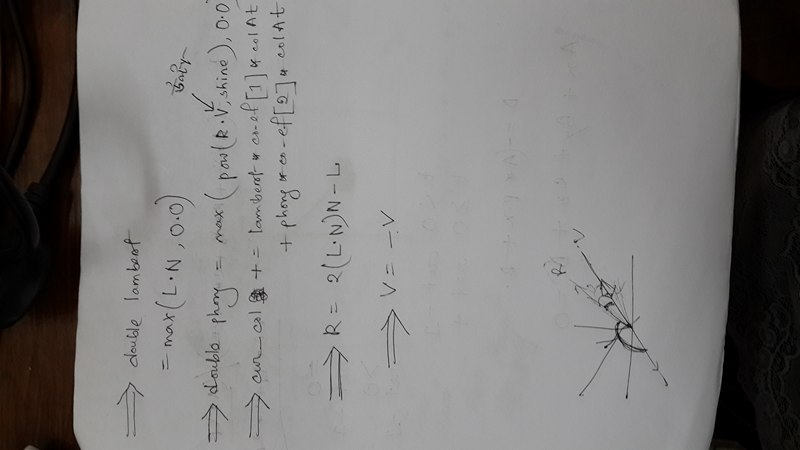 ⇒ double lambert
= max(L·N, 0.0)
⇒ double phong = max(pow(R·V, shine), 0.0)
⇒ cur_col += lambert * co-ef[1] * colAt
+ phong * co-ef[2] * colAt
⇒ R = 2(L·N)N - L
⇒ V = -V
R
V